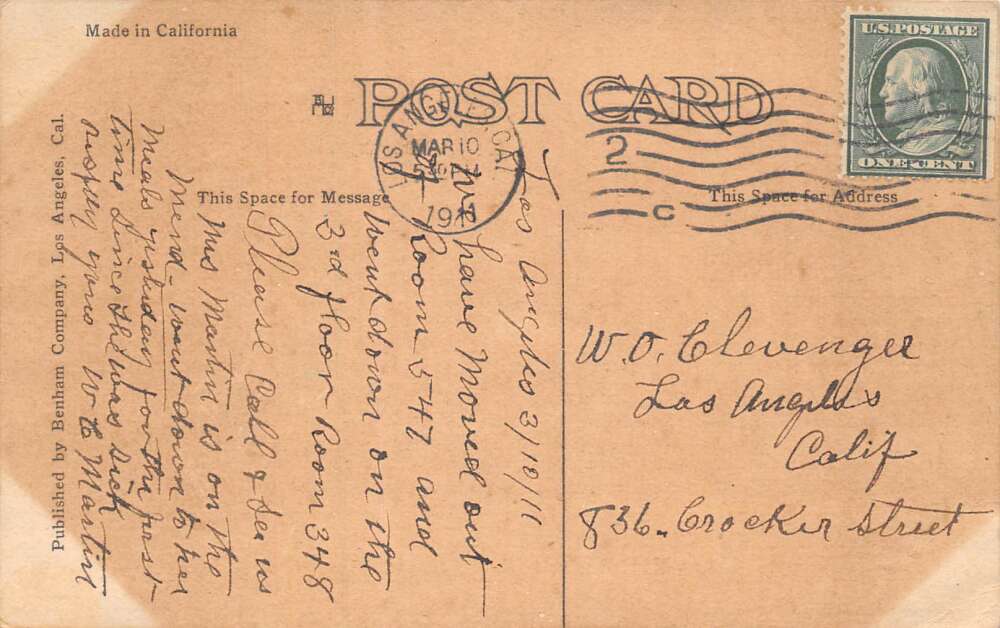 Made in California
POST CARD
This Space for Message
This Space for Address
Published by Benham Company, Los Angeles, Cal.
U.S. POSTAGE
ONE CENT
LOS ANGELES, CAL.
MAR 10
1911
2
C
Los Angeles 3/10/11
We have Moved out
of Room 547 and
Went down on the
3rd floor Room 348
Please Call & See us
Mrs Martin is on the
Mend - went down to her
Meals yesterday for the first
time Since She was Sick
yours W E Martin
W. O. Clevenger
Los Angeles
Calif
836 - Crocker Street